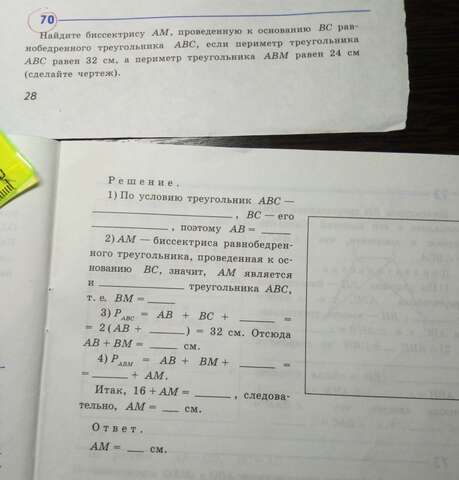 70
Найдите биссектрису AM, проведенную к основанию BC рав-
нобедренного треугольника ABC, если периметр треугольника
ABC равен 32 см, а периметр треугольника ABM равен 24 см
(сделайте чертеж).
28
Решение.
1) По условию треугольник ABC —
____________________ , BC — его
____________ , поэтому AB = _____
2) AM — биссектриса равнобедрен-
ного треугольника, проведенная к ос-
нованию BC, значит, AM является
и ____________ треугольника ABC,
т. е. BM = _____
3) P_ABC = AB + BC + _____ =
= 2 (AB + _____ ) = 32 см. Отсюда
AB + BM = _____ см.
4) P_ABM = AB + BM + _____ =
= _____ + AM.
Итак, 16 + AM = _____ , следова-
тельно, AM = ___ см.
Ответ.
AM = ___ см.